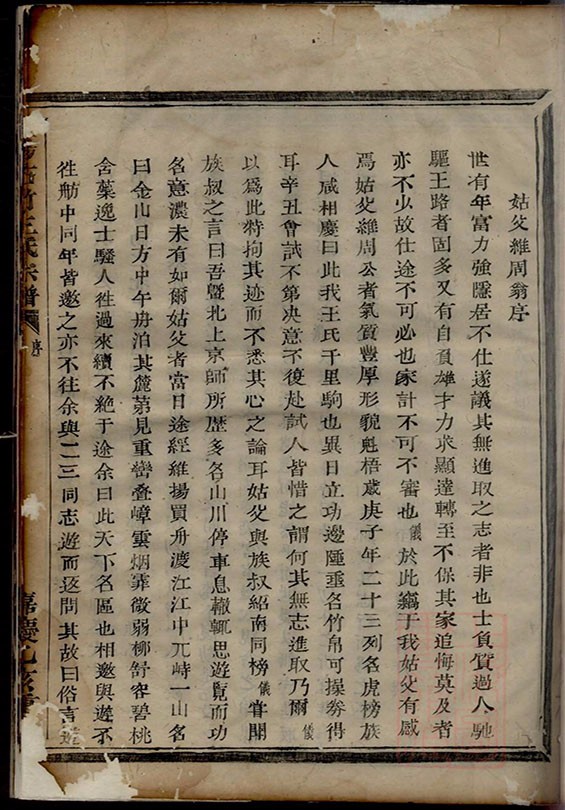 姑父維周翁序
世有年富力強隱居不仕遂議其無進取之志者非也士負質過人馳
驅王路者固多又有自負雄才力求顯達轉至不保其家追悔莫及者
亦不少故仕途不可必也家計不可不審也儀於此竊于我姑父有感
焉姑父維周公者氣質豐厚形貌魁梧歲庚子年二十三列名虎榜族
人咸相慶曰此我王氏千里駒也異日立功邊陲垂名竹帛可操劵得
耳辛丑會試不第決意不復赴試人皆惜之謂何其無志進取乃爾儀
以爲此特拘其迹而不悉其心之論耳姑父與族叔紹南同榜儀嘗聞
族叔之言曰吾曁北上京師所歷多名山川停車息轍輒思遊覽而功
名意濃未有如爾姑父者當日途經維揚買舟渡江江中兀峙一山名
曰金山日方中午舟泊其麓苐見重巒叠嶂雲烟靠微弱柳舒容碧桃
舍蕋逸士騷人徃過來續不絶于途余曰此天下名區也相邀與遊不
徃舫中同年皆邀之亦不往余與二三同志遊而返問其故曰俗言遊
王氏宗譜
序
嘉慶